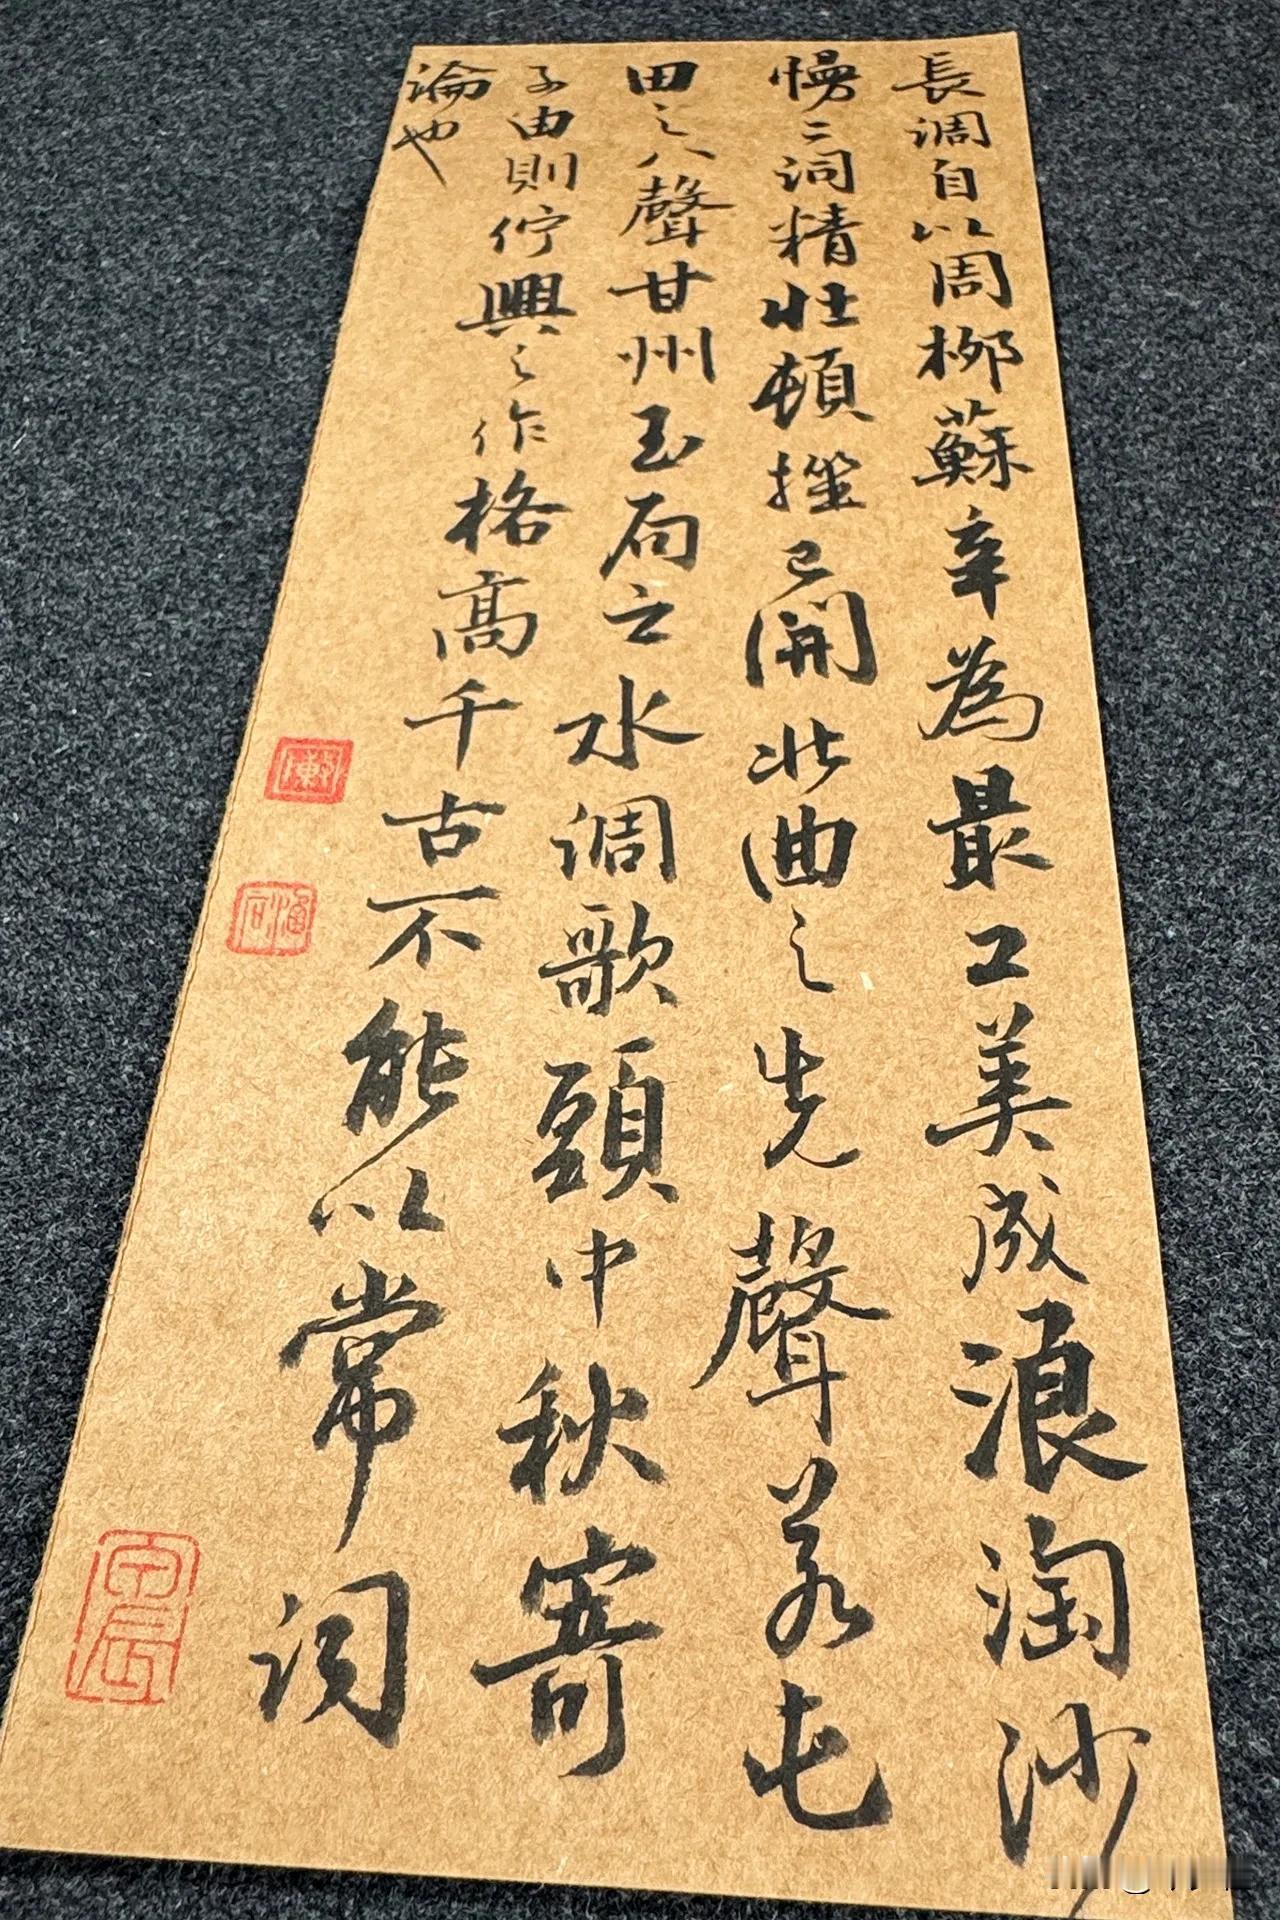 長調自以周柳蘇辛為最工美成浪淘沙
慢二詞精壯頓挫已開北曲之先聲若屯
田之八聲甘州玉局之水調歌頭中秋寄
子由則佇興之作格高千古不能以常詞
論也